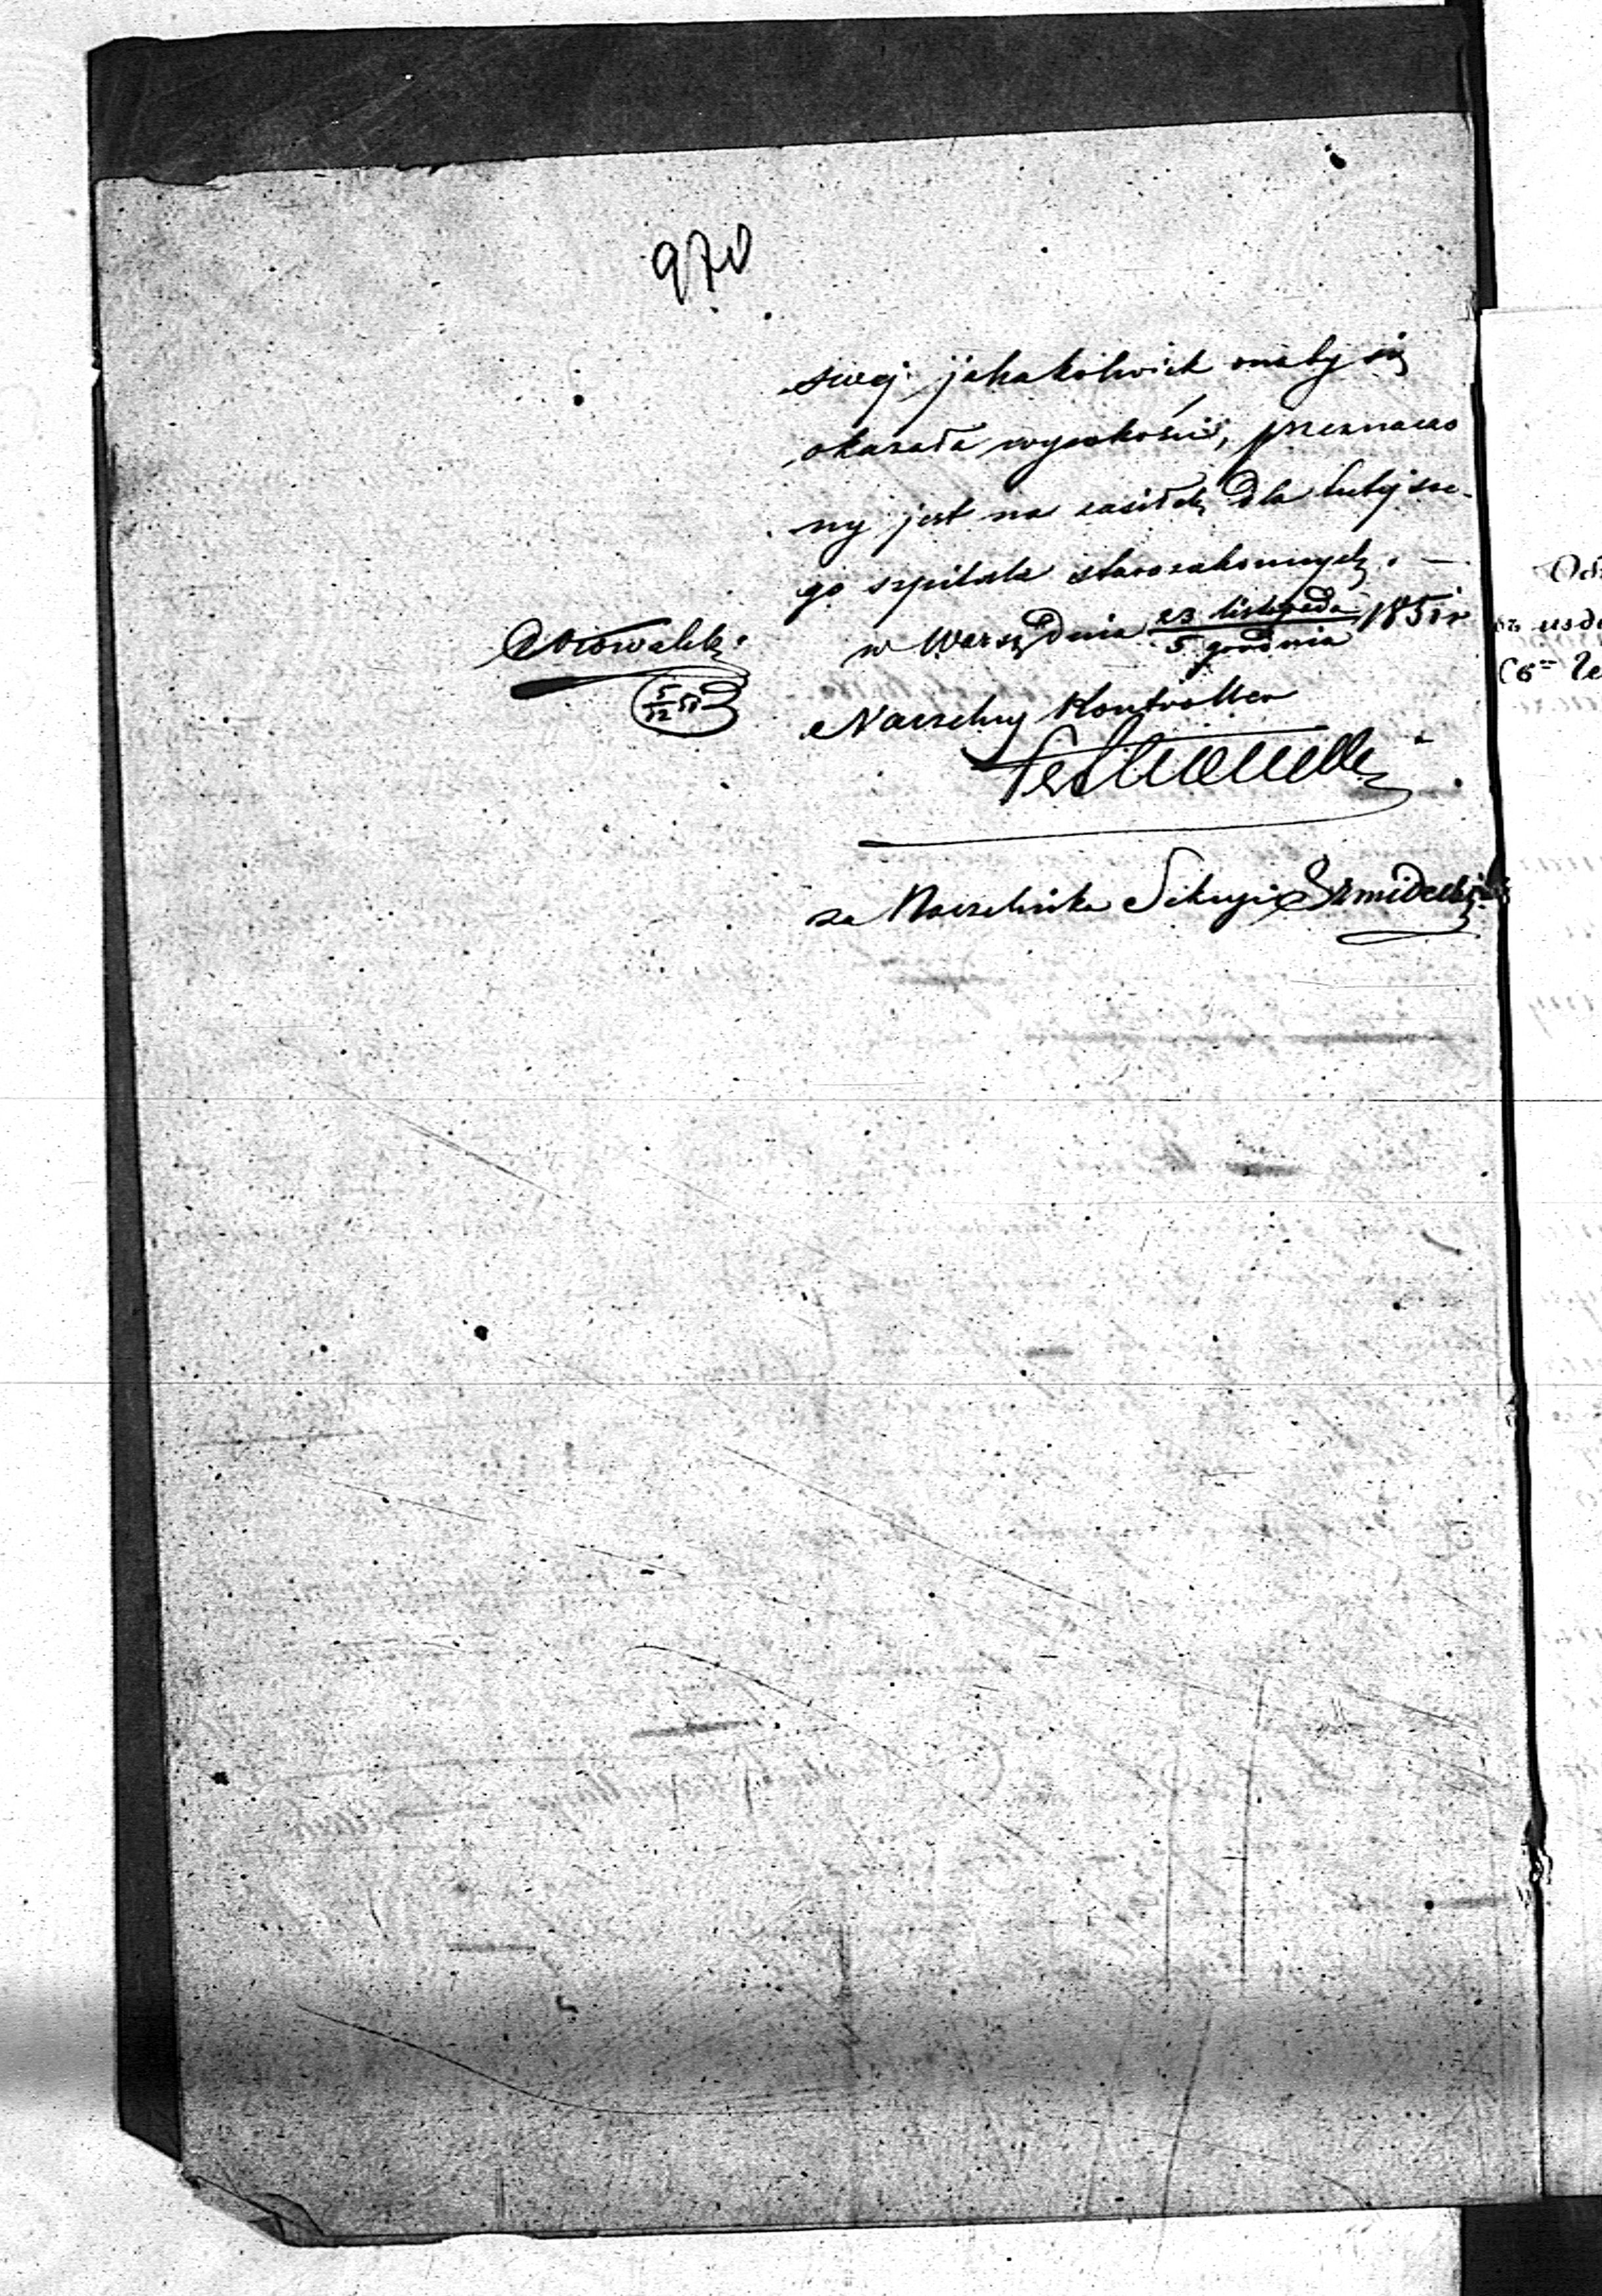 970
swej jakakolwiek onaby się
okazała wysokości, przeznaczo
ny jest na zasiłek dla tutejsze-
go szpitala starozakonnych. —
w Warsz. dnia 23 listopada / 5 grudnia 1851 r
Nowalski
5/12 51
Naczelny Kontroller
za Naczelnika Sekcyi